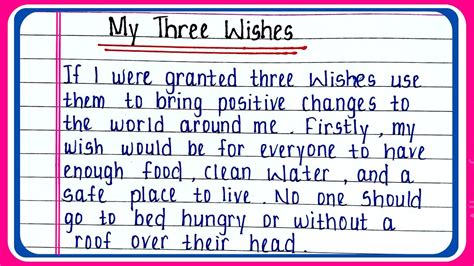 My Three Wishes
If I were granted three wishes use
them to bring positive changes to
the world around me . Firstly , my
wish would be for everyone to have
enough food , clean water , and a
safe place to live . No one should
go to bed hungry or without a
roof over their head .